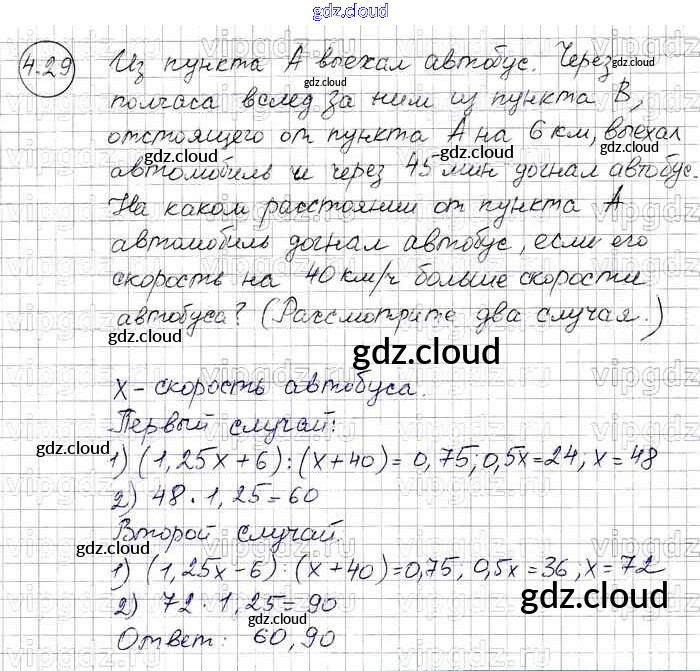 gdz.cloud
4.29
Из пункта А выехал автобус. Через
gdz.cloud
полчаса вслед за ним из пункта В,
отстоящего от пункта А на 6 км, выехал
gdz.cloud
gdz.cloud
автомобиль и через 45 мин догнал автобус.
На каком расстоянии от пункта А
gdz.cloud
автомобиль догнал автобус, если его
скорость на 40 км/ч больше скорости
gdz.cloud
автобуса? (Рассмотрите два случая.)
gdz.cloud
x - скорость автобуса.
Первый случай:
gdz.cloud
gdz.cloud
1) (1,25x+6):(x+40)=0,75, 0,5x=24, x=48
2) 48·1,25=60
gdz.cloud
Второй случай.
gdz.cloud
1) (1,25x-6):(x+40)=0,75, 0,5x=36; x=72
2) 72·1,25=90
gdz.cloud
Ответ: 60, 90
gdz.cloud